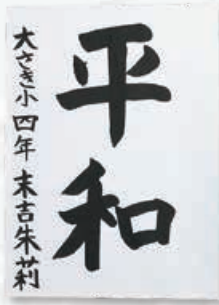 平和
大さき小四年末吉朱莉